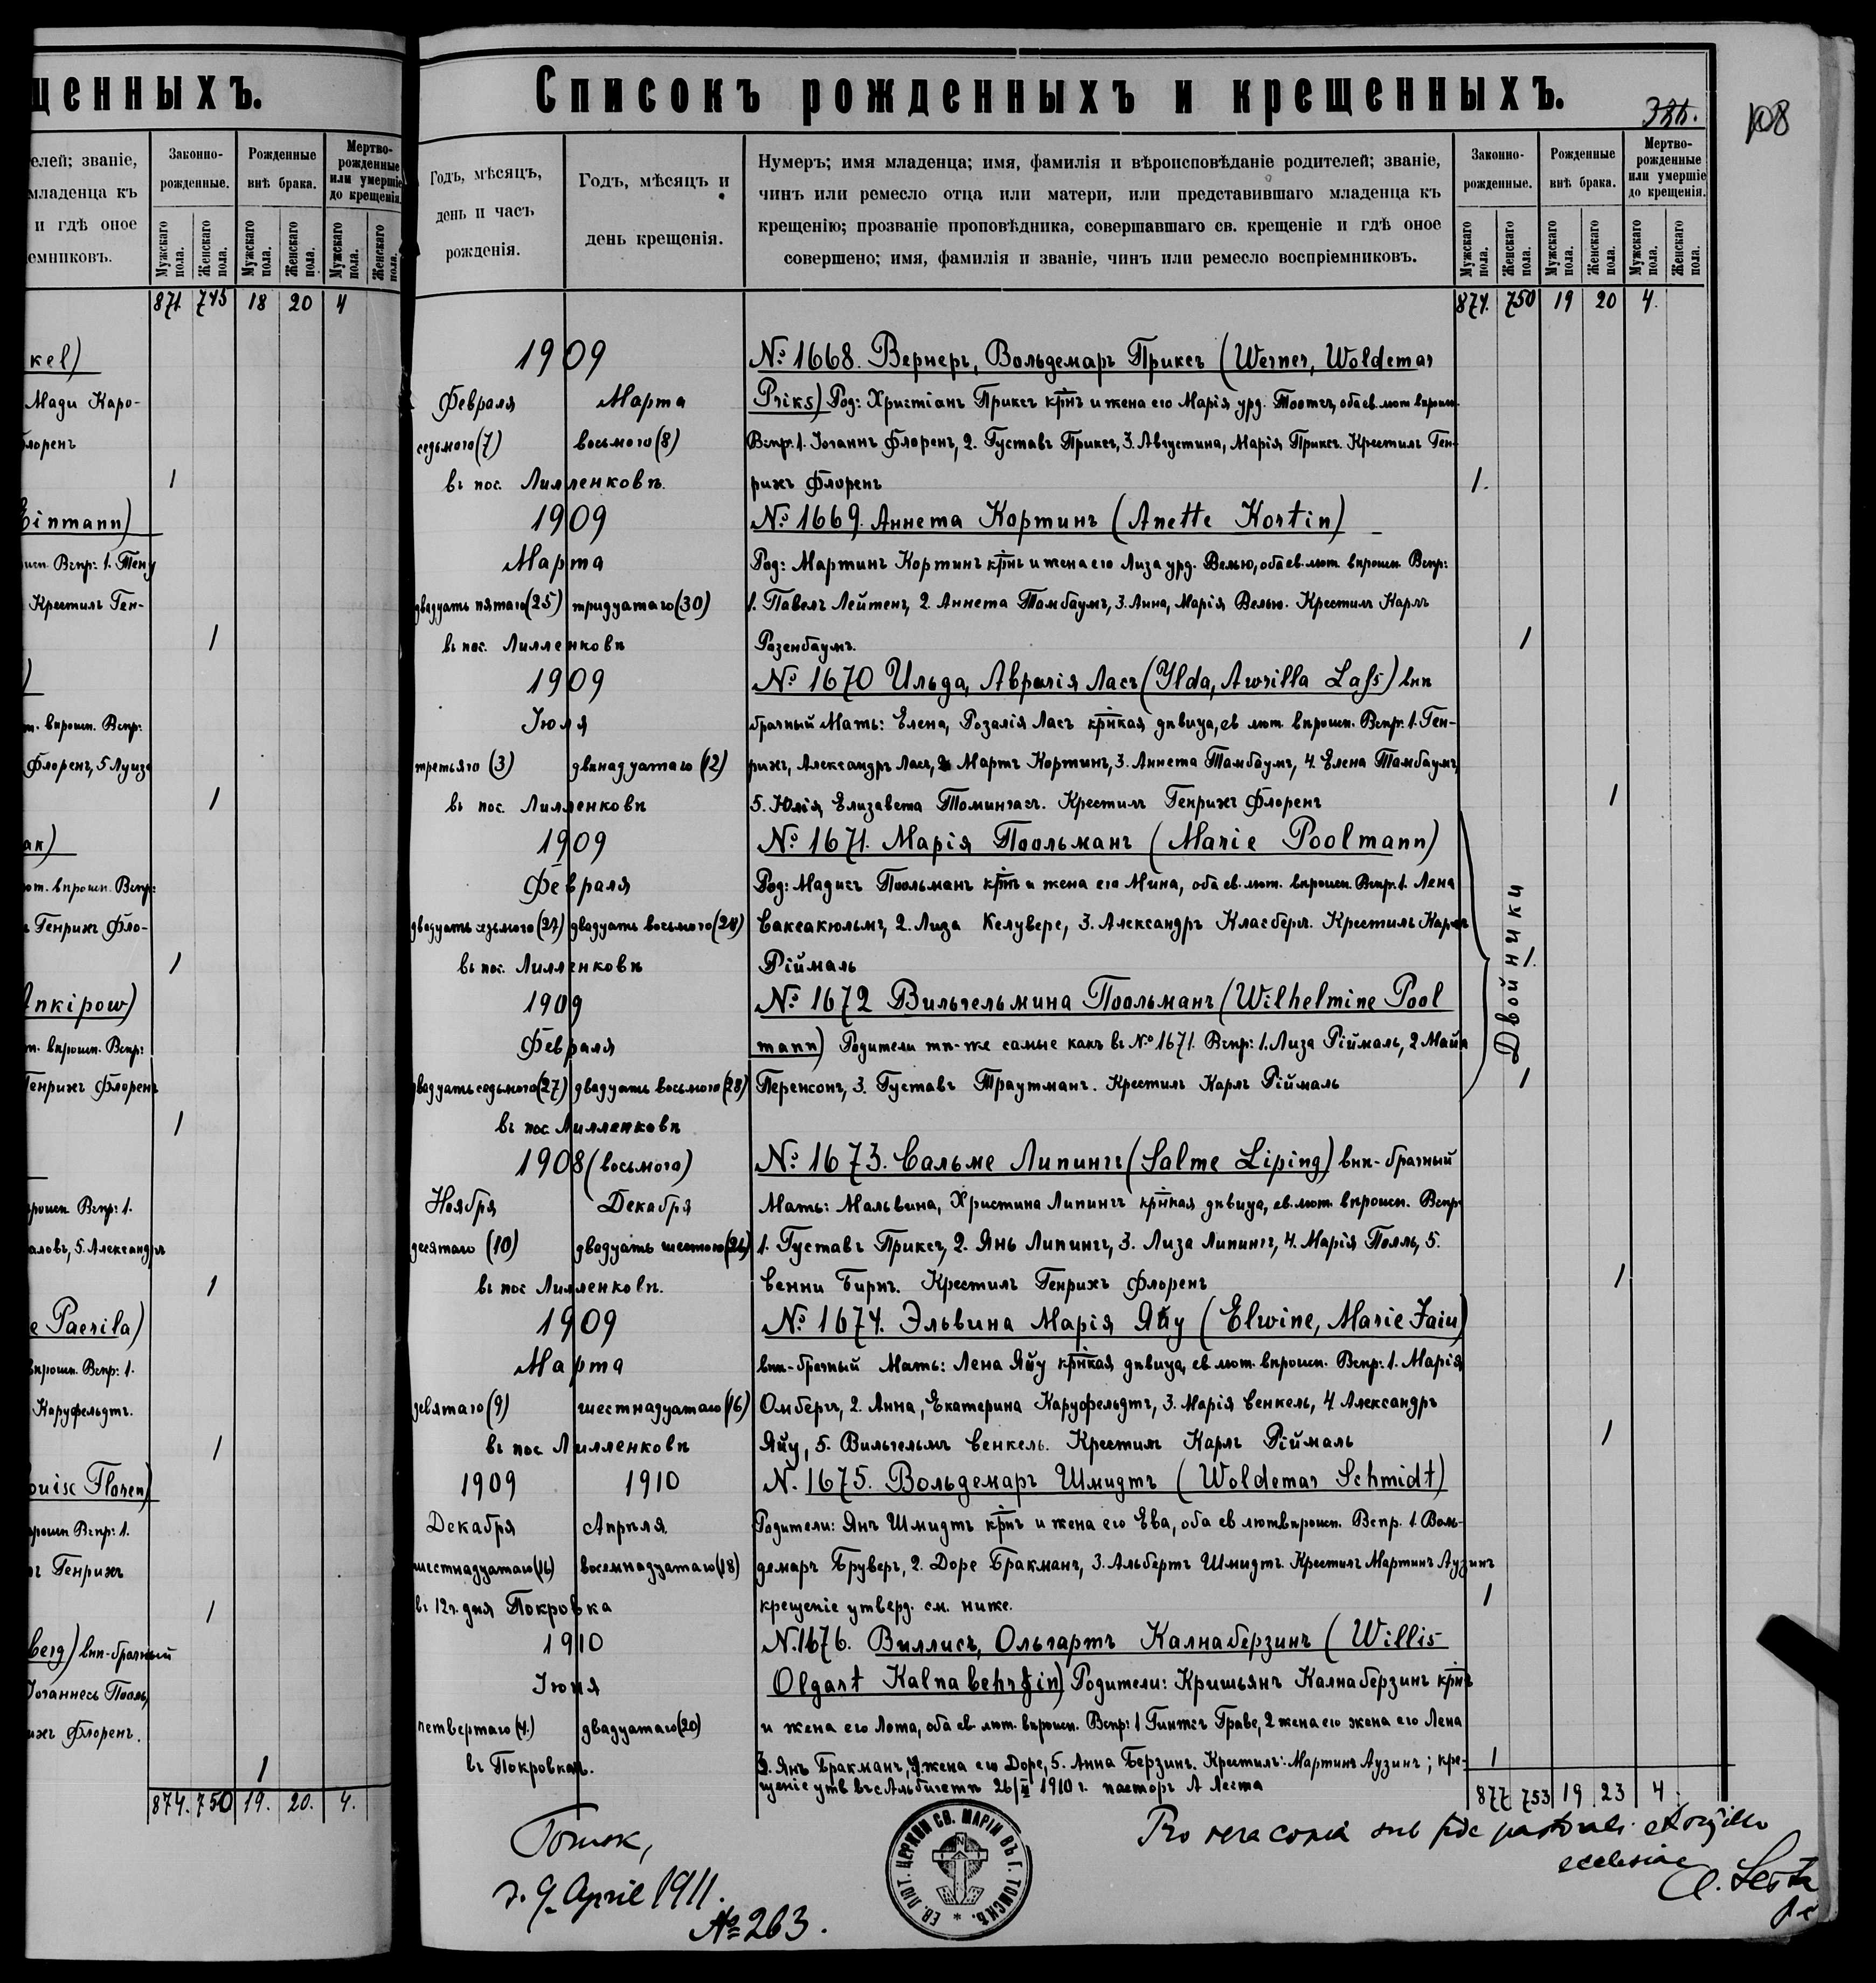 щенныхъ.
елей; званіе,
младенца къ
и гдѣ оное
емниковъ.
Законно-
рожденные.
Рожденные
внѣ брака.
Мертво-
рожденные
или умершіе
до крещенія.
Мужскаго пола.
Женскаго пола.
Мужскаго пола.
Женскаго пола.
Мужскаго пола.
Женскаго пола.
871. 745 18 20 4
kel)
Мади Каро-
лоренъ
1
Einmann)
исп. Вспр: 1. Тену
Крестилъ Ген-
1
)
т. вѣроисп. Вспр:
Флоренъ, 5 Луиза
1
ak)
ют. вѣроисп. Вспр:
ъ Генрихъ Фло-
1
Ankipow)
т. вѣроисп. Вспр:
Генрихъ Флоренъ
1
роисп. Вспр: 1.
аловъ, 5. Александръ
1
e Paerila)
вѣроисп. Вспр: 1.
Каруфельдтъ.
1
ouise Floren)
роисп Вспр: 1.
Генрихъ
1
berg) внѣ-брачный
Іоганнесъ Пооль,
ихъ Флоренъ.
1
874. 750 19. 20. 4.
Списокъ рожденныхъ и крещенныхъ.
108
Годъ, мѣсяцъ,
день и часъ
рожденія.
Годъ, мѣсяцъ и
день крещенія.
Нумеръ; имя младенца; имя, фамилія и вѣроисповѣданіе родителей; званіе,
чинъ или ремесло отца или матери, или представившаго младенца къ
крещенію; прозваніе проповѣдника, совершавшаго св. крещеніе и гдѣ оное
совершено; имя, фамилія и званіе, чинъ или ремесло воспріемниковъ.
Законно-
рожденные.
Рожденные
внѣ брака.
Мертво-
рожденные
или умершіе
до крещенія.
Мужскаго пола.
Женскаго пола.
Мужскаго пола.
Женскаго пола.
Мужскаго пола.
Женскаго пола.
874. 750 19 20 4.
1909 № 1668. Вернеръ, Вольдемаръ Приксъ (Werner, Woldemar
Февраля Марта Priks) Род: Христіанъ Приксъ крнъ и жена его Марія урд. Тоотсъ, оба ев. лют вѣроисп.
седьмого (7) восьмого (8) Вспр: 1. Іоганнъ Флоренъ, 2. Густавъ Приксъ, 3. Августина, Марія Приксъ. Крестилъ Ген-
въ пос. Лилленковѣ. рихъ Флоренъ 1.
1909 № 1669. Аннета Кортинъ (Anette Kortin)
Марта Род: Мартинъ Кортинъ крнъ и жена его Лиза урд. Велью, оба ев. лют. вѣроисп. Вспр:
двадцать пятаго (25) тридцатаго (30) 1. Павелъ Лейтенъ, 2. Аннета Томбаумъ, 3. Анна, Марія Велью. Крестилъ Карлъ
въ пос. Лилленковѣ Розенбаумъ. 1
1909 № 1670 Ильда, Аврилія Ласъ (Ylda, Awrilla Laſs) внѣ
Іюля брачный Мать: Елена, Розалія Ласъ крнкая дѣвица, ев лют. вѣроисп. Вспр: 1. Ген-
третьяго (3) двѣнадцатаго (12) рихъ, Александръ Ласъ, 2 Мартъ Кортинъ, 3. Аннета Тамбаумъ, 4. Елена Тамбаумъ,
въ пос. Лилленковѣ 5. Юлія, Елизавета Томингасъ. Крестилъ Генрихъ Флоренъ 1
1909 № 1671. Марія Поольманъ (Marie Poolmann)
Февраля Род: Мадисъ Поольманъ крнъ и жена его Мина, оба ев. лют. вѣроисп. Вспр: 1. Лена
двадцать седьмого (27) двадцать восьмого (28) Саксакюльмъ, 2. Лиза Келувере, 3. Александръ Класбергъ. Крестилъ Карлъ
въ пос. Лилленковѣ Рiймаль 1.
Двойники
1909 № 1672 Вильгельмина Поольманъ (Wilhelmine Pool
Февраля mann) Родители тѣ-же самые какъ въ № 1671. Вспр: 1. Лиза Рiймаль, 2 Майа
двадцать седьмого (27) двадцать восьмого (28) Перенсонъ, 3. Густавъ Траутманъ. Крестилъ Карлъ Рiймаль 1
въ пос Лилленковѣ
1908 (восьмого) № 1673. Сальме Липингъ (Salme Liping) внѣ-брачный
Ноября Декабря Мать: Мальвина, Христина Липингъ крнкая дѣвица, ев. лют. вѣроисп. Вспр:
десятаго (10) двадцать шестого (26) 1. Густавъ Приксъ, 2. Янь Липингъ, 3. Лиза Липингъ, 4. Марія Полль, 5.
въ пос Лилленковѣ. Сенни Биркъ. Крестилъ Генрихъ Флоренъ 1
1909 № 1674. Эльвина Марія Яйу (Elwine, Marie Jaiu)
Марта внѣ-брачный Мать: Лена Яйу крнкая дѣвица, ев лют. вѣроисп. Вспр: 1. Марія
девятаго (9) шестнадцатаго (16) Омбергъ, 2. Анна, Екатерина Каруфельдтъ, 3. Марія Сенкель, 4 Александръ
въ пос Лилленковѣ Яйу, 5. Вильгельмъ Сенкель. Крестилъ Карлъ Рiймаль 1
1909 1910 N. 1675. Вольдемаръ Шмидтъ (Woldemar Schmidt)
Декабря Апрѣля Родители: Янъ Шмидтъ крнъ и жена его Ева, оба ев лютвѣроисп. Вспр. 1. Воль-
шестнадцатаго (16) восемнадцатаго (18) демаръ Бруверъ, 2. Доре Бракманъ, 3. Альбертъ Шмидтъ. Крестилъ Мартинъ Аузинъ
въ 12 ч. дня Покровка крещеніе утверд. см. ниже. 1
1910 N. 1676. Виллисъ, Ольгартъ Калнаберзинъ (Willis
Іюня Olgart Kalnabehrzin) Родители: Кришьянъ Калнаберзинъ крнъ
четвертаго (4.) двадцатаго (20) и жена его Лота, оба ев лют. вѣроисп. Вспр: 1 Гинтсъ Граве, 2 жена его жена его Лена
въ Покровкѣ. 3. Янъ Бракманъ, 4. жена его Доре, 5. Анна Берзинъ. Крестилъ: Мартинъ Аузинъ; кре- 1
щеніе утв въ с Альбигетѣ 1910 г. пасторъ А Леста
877 753 19 23 4.
Tomsk,
d. 9. April 1911.
№ 263.
ЕВ. ЛЮТ. ЦЕРКВИ СВ. МАРІИ ВЪ Г. ТОМСКѢ.
Pro vera copia sub fide pastorali et sigillo
ecclesiae